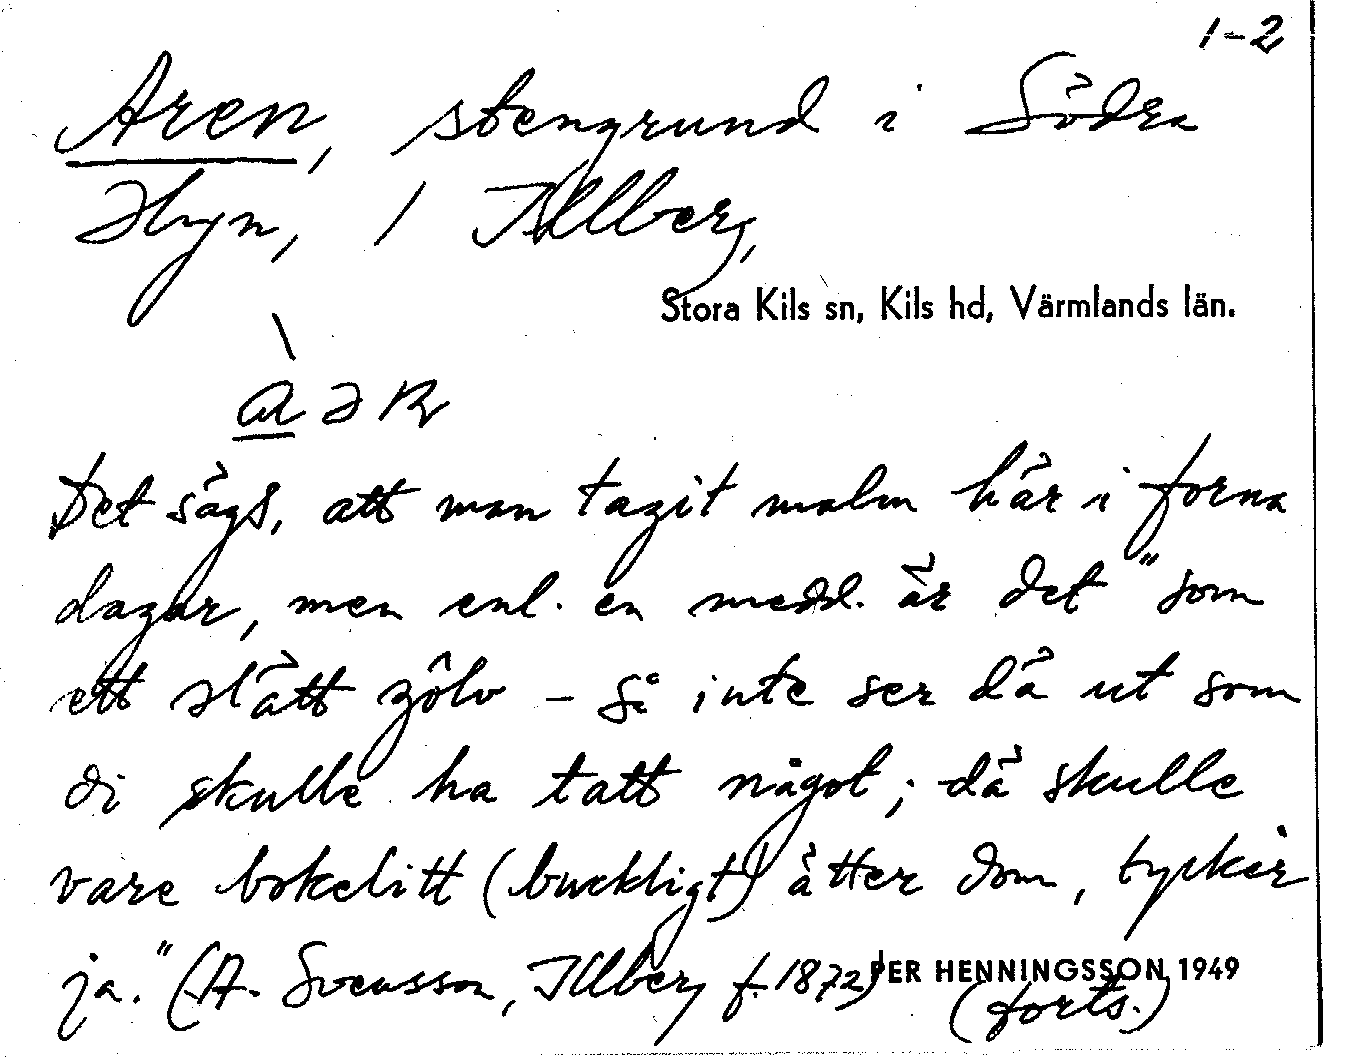 1-2
Aren, stengrund i Södra
Hyn, / Illberg,
Stora Kils sn, Kils hd, Värmlands län.
Det sägs, att man tagit malm här i forna
dagar, men enl. en medd. är det "som
ett slätt gôlv – så inte ser dä ut som
di skulle ha tatt något; dä skulle
vare bokelitt (buckligt) ätter dom, tycker
ja." (A. Svensson, Illberg f. 1872)
PER HENNINGSSON 1949
(forts.)